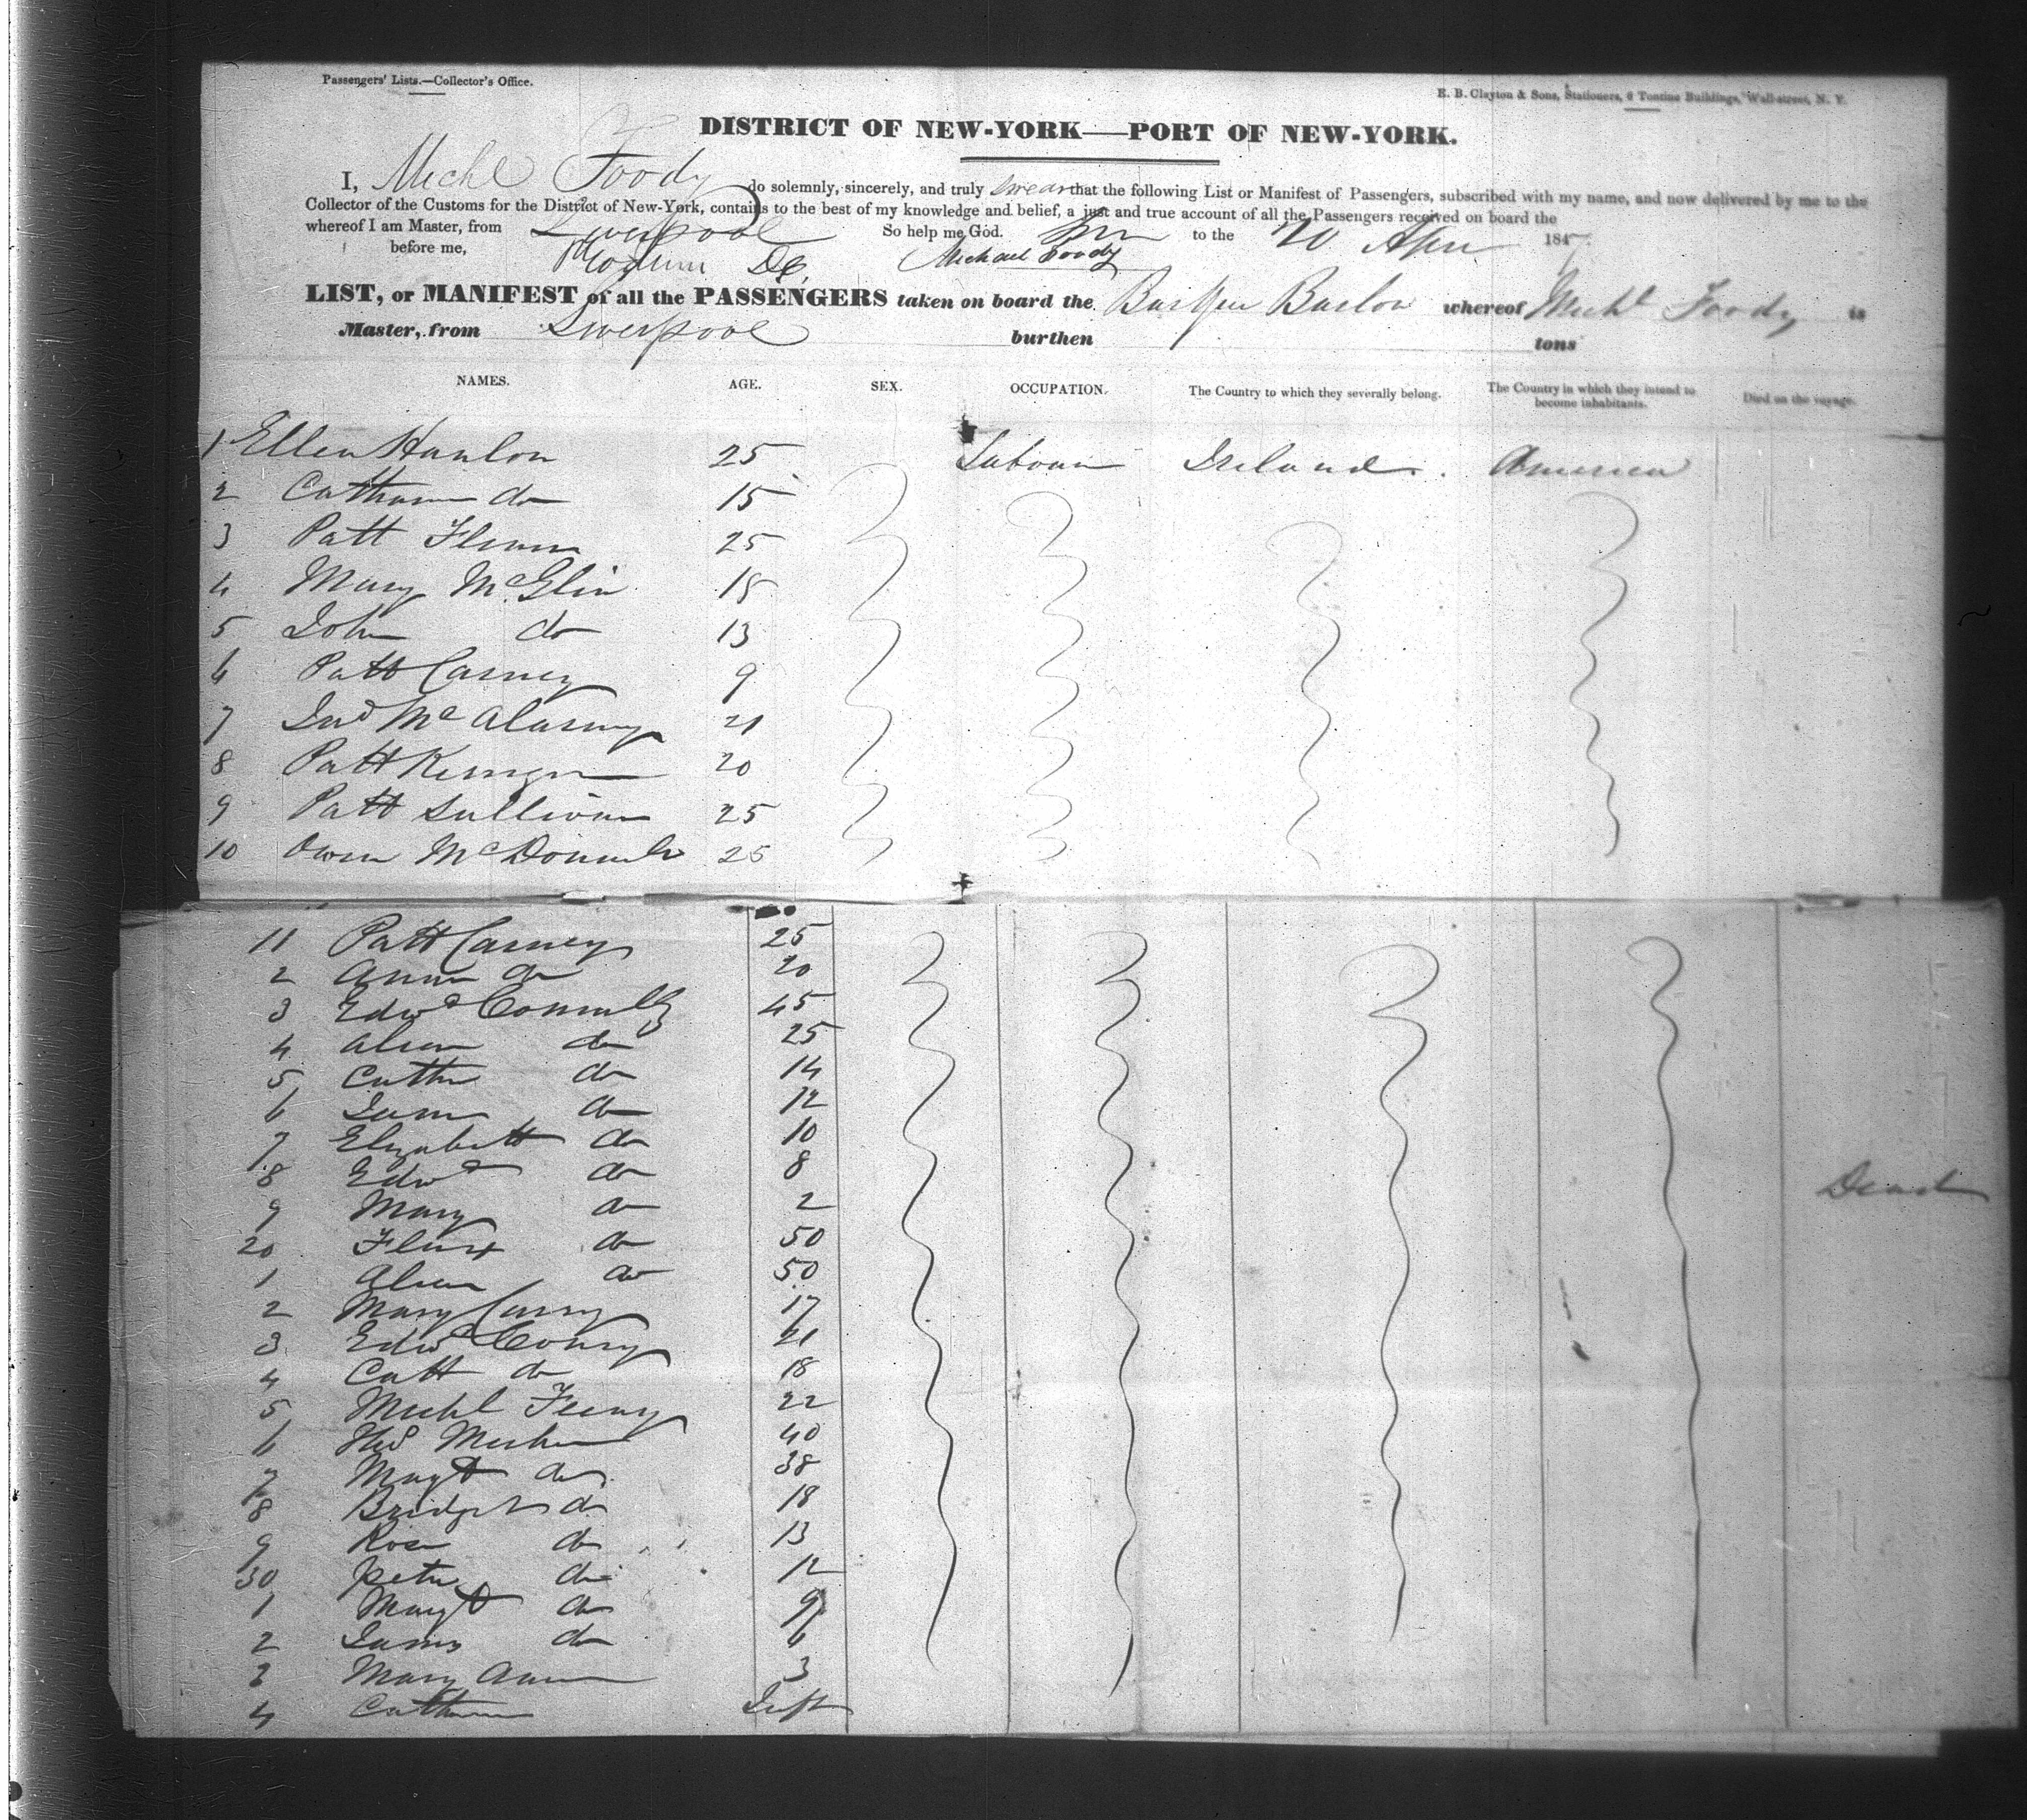 Passengers' Lists.—Collector's Office.
E. B. Clayton & Sons, Stationers, 6 Tontine Buildings, Wall-street, N. Y.
DISTRICT OF NEW-YORK—PORT OF NEW-YORK.
I, Michl Foody do solemnly, sincerely, and truly swear that the following List or Manifest of Passengers, subscribed with my name, and now delivered by me to the
Collector of the Customs for the District of New-York, contains to the best of my knowledge and belief, a just and true account of all the Passengers received on board the
whereof I am Master, from Liverpool So help me God. to the 20 Apr 1847
before me, Michael Foody
LIST, or MANIFEST of all the PASSENGERS taken on board the Barlow whereof Michl Foody is
Master, from Liverpool burthen tons
NAMES. AGE. SEX. OCCUPATION. The Country to which they severally belong. The Country in which they intend to become inhabitants. Died on the voyage.
1 Ellen Hanlon 25 Labour Ireland. America
2 Catharine do 15
3 Patt 25
4 Mary McGlin 18
5 John do 13
6 Patt Carney 9
7 21
8 Patt 20
9 Patt Sullivan 25
10 Owen McDonnell 25
11 Patt Carney 25
2 Ann do 20
3 Edwd Connolly 45
4 do 25
5 Cathn do 14
6 do 12
7 Elizabeth do 10
8 Edwd do 8
9 Mary do 2 Dead
20 do 50
1 do 50
2 Mary 17
3 Edwd 21
4 Cath do 18
5 Michl Feeny 22
6 40
7 Magt do 38
8 Bridget do 18
9 Rose do 13
30 Peter do 12
1 Magt do 9
2 James do 6
3 Mary Ann 3
4 Catharine Inft